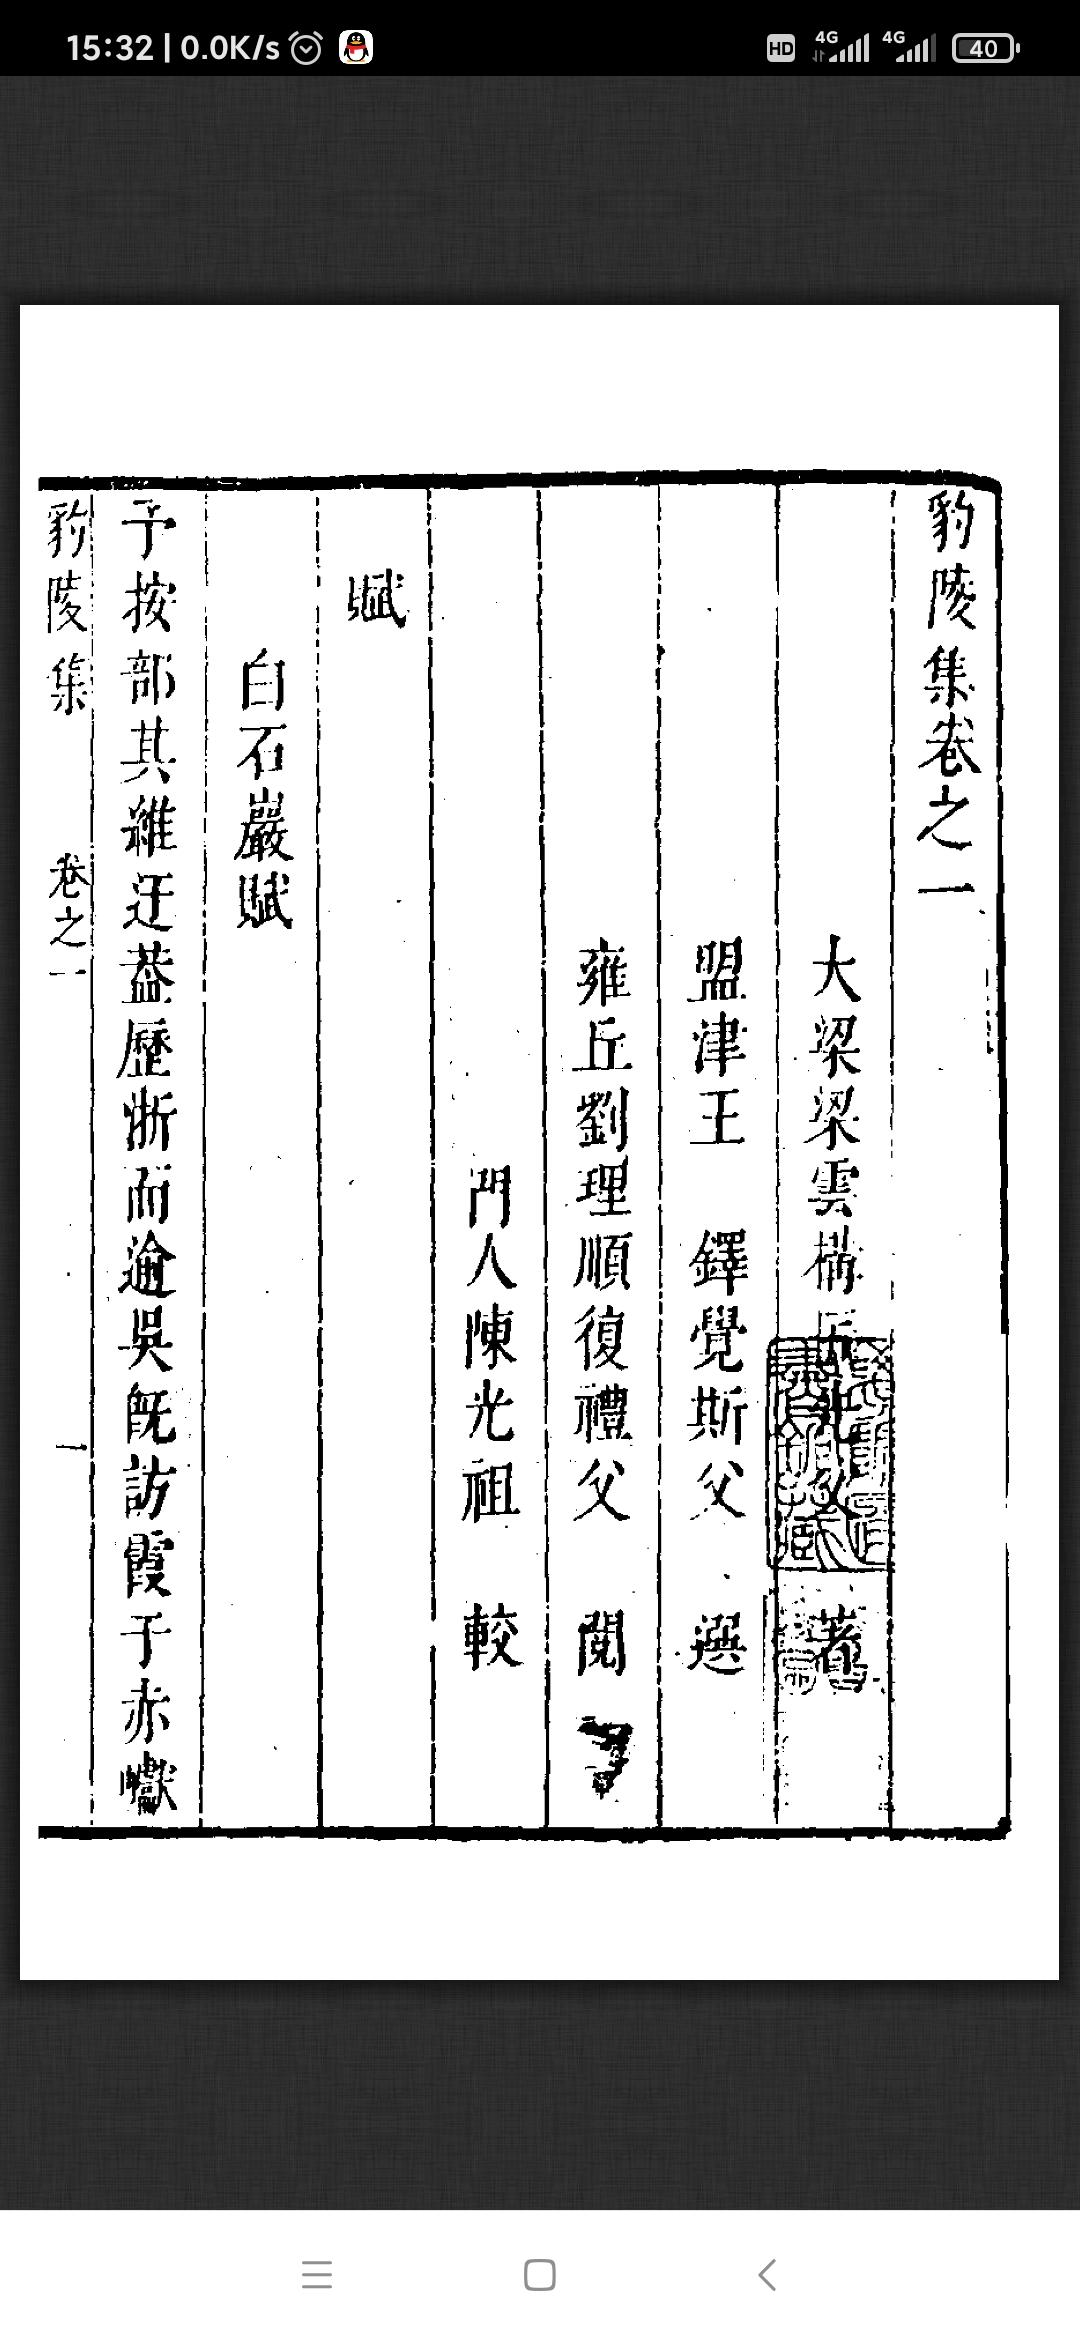 15:32 | 0.0K/s
HD 4G 4G 40
豹陵集卷之一
大梁梁雲構 父 著
盟津王 鐸覺斯父 選
雍丘劉理順復禮父 閱
門人陳光祖 較
賦
白石巖賦
予按部其雖迂葢歷浙而逾吳旣訪霞于赤巘
豹陵集 卷之一 一